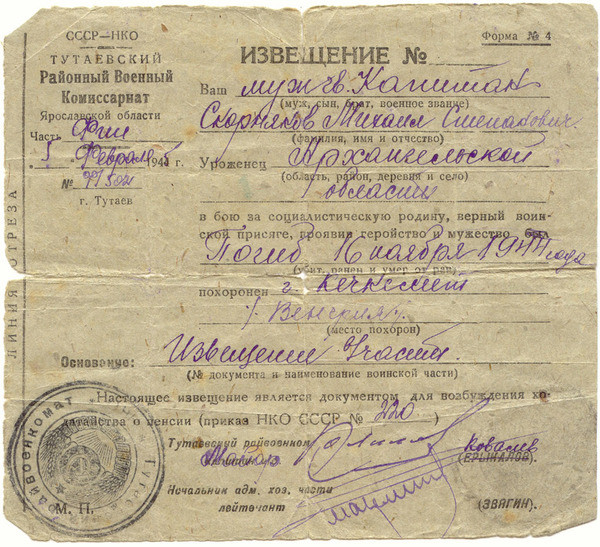 СССР—НКО
ТУТАЕВСКИЙ
Районный Военный
Комиссариат
Ярославской области
Часть
5 Февраля 1945 г.
№
г. Тутаев
ЛИНИЯ ОТРЕЗА
Форма № 4
ИЗВЕЩЕНИЕ №
Ваш муж гв. Капитан
(муж, сын, брат, военное звание)
Скорняков Михаил Степанович
(фамилия, имя и отчество)
Уроженец Архангельской
(область, район, деревня и село)
области
в бою за социалистическую родину, верный воин-
ской присяге, проявив геройство и мужество был
Погиб 16 ноября 1944 года
(убит, ранен и умер от ран)
похоронен г. Кечкемет
/Венгрия/.
(место похорон)
Основание: Извещение части.
(№ документа и наименование воинской части)
Настоящее извещение является документом для возбуждения хо-
датайства о пенсии (приказ НКО СССР № 220)
Тутаевский райвоенком
Майор
Ковалев
(ЕРЫКАЛОВ).
Начальник адм. хоз. части
лейтенант
(ЗВЯГИН).
М. П.